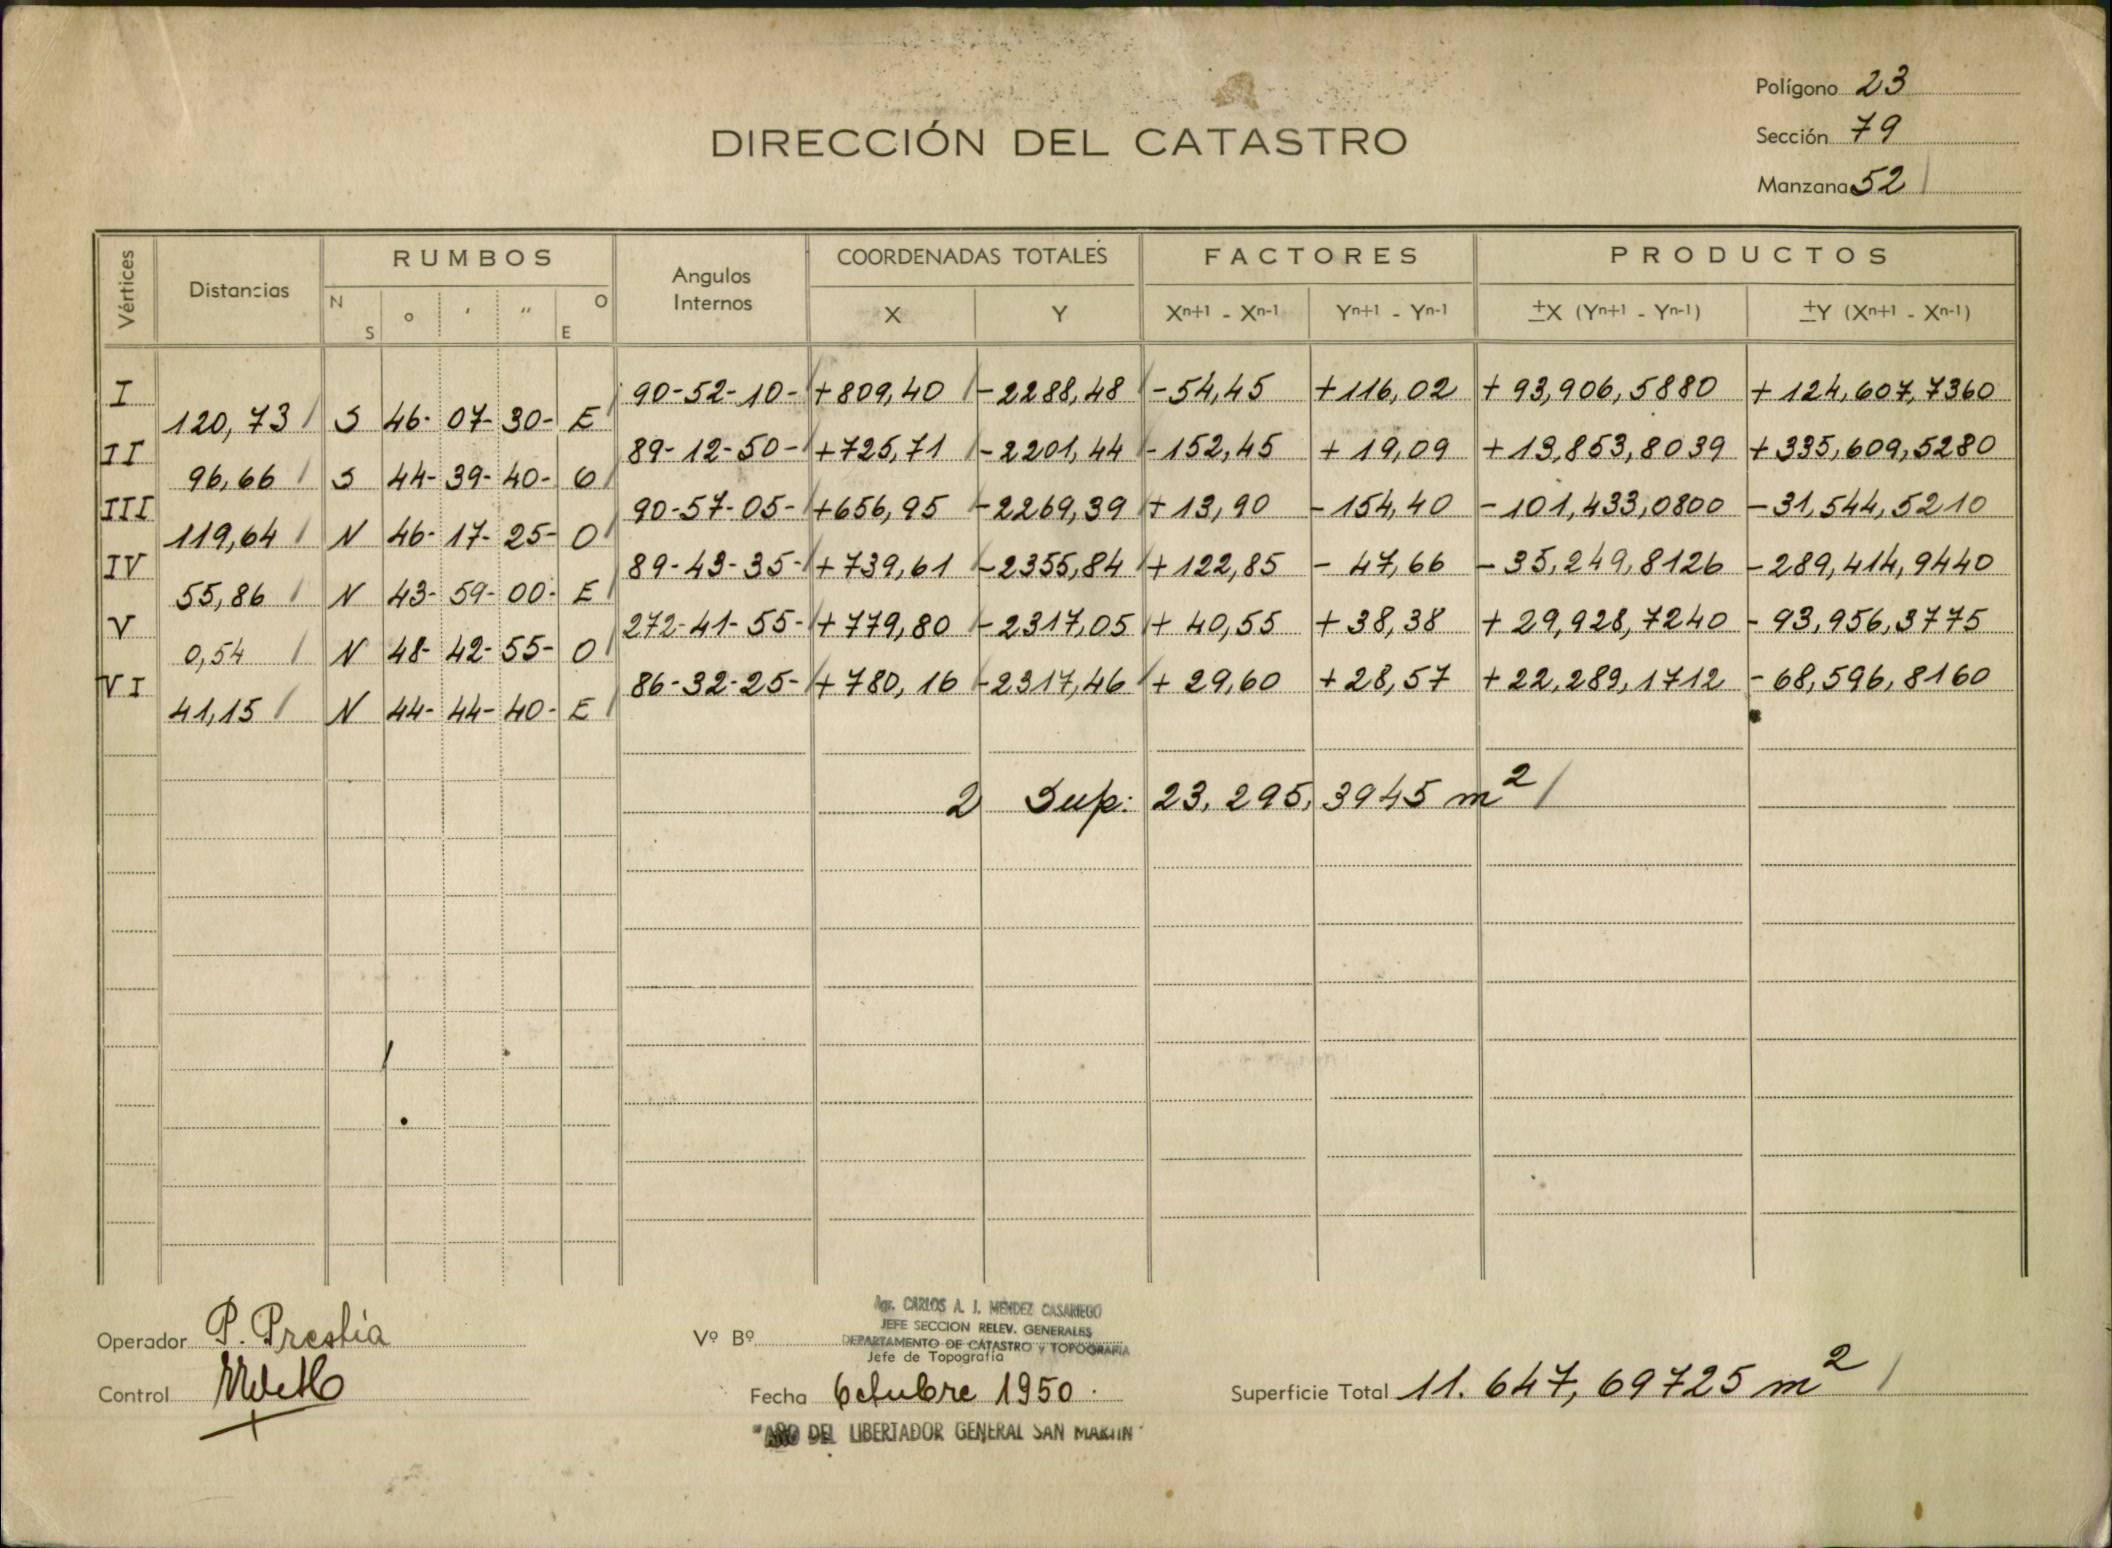 Polígono 23
DIRECCIÓN DEL CATASTRO
Sección 79
Manzana 52
Vértices Distancias RUMBOS Angulos Internos COORDENADAS TOTALES FACTORES PRODUCTOS
N S ° ' " O E X Y Xn+1 - Xn-1 Yn+1 - Yn-1 ±X (Yn+1 - Yn-1) ±Y (Xn+1 - Xn-1)
I 90-52-10- +809,40 -2288,48 -54,45 +116,02 +93,906,5880 +124,607,7360
120,73 S 46- 07- 30- E
II 89-12-50- +725,71 -2201,44 -152,45 +19,09 +13,853,8039 +335,609,5280
96,66 S 44- 39- 40- O
III 90-57-05- +656,95 -2269,39 +13,90 -154,40 -101,433,0800 -31,544,5210
119,64 N 46- 17- 25- O
IV 89-43-35- +739,61 -2355,84 +122,85 -47,66 -35,249,8126 -289,414,9440
55,86 N 43- 59- 00- E
V 272-41-55- +779,80 -2317,05 +40,55 +38,38 +29,928,7240 -93,956,3775
0,54 N 48- 42- 55- O
VI 86-32-25- +780,16 -2317,46 +29,60 +28,57 +22,289,1712 -68,596,8160
41,15 N 44- 44- 40- E
2 Sup: 23,295,3945 m2
Agr. CARLOS A. J. MENDEZ CASARIEGO
JEFE SECCION RELEV. GENERALES
Operador P. Prestia Vº Bº DEPARTAMENTO DE CATASTRO y TOPOGRAFIA
Jefe de Topografía
Control Fecha Octubre 1950. Superficie Total 11.647,69725 m2
"AÑO DEL LIBERTADOR GENERAL SAN MARTIN"